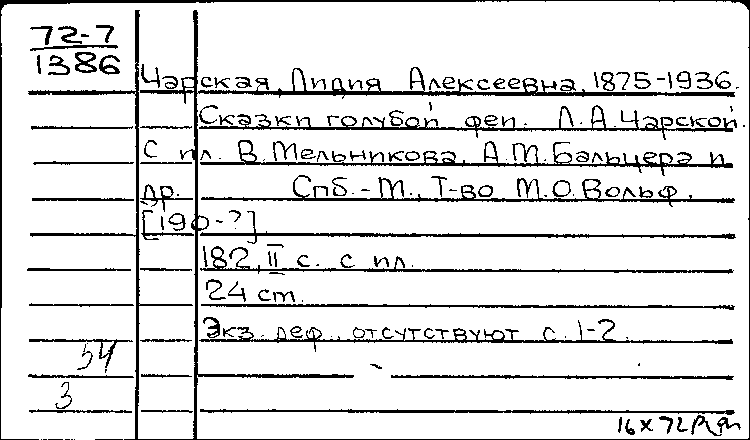 72-7
1386
Чарская, Лидия Алексеевна, 1875-1936.
Сказки голубой феи. Л.А.Чарской.
С ил. В.Мельникова, А.М.Бальцера и
др. Спб.-М., Т-во М.О.Вольф.
[190-?]
182, II с. с ил.
24 cm.
Экз. деф., отсутствуют с. 1-2.
54
3
16 x 72